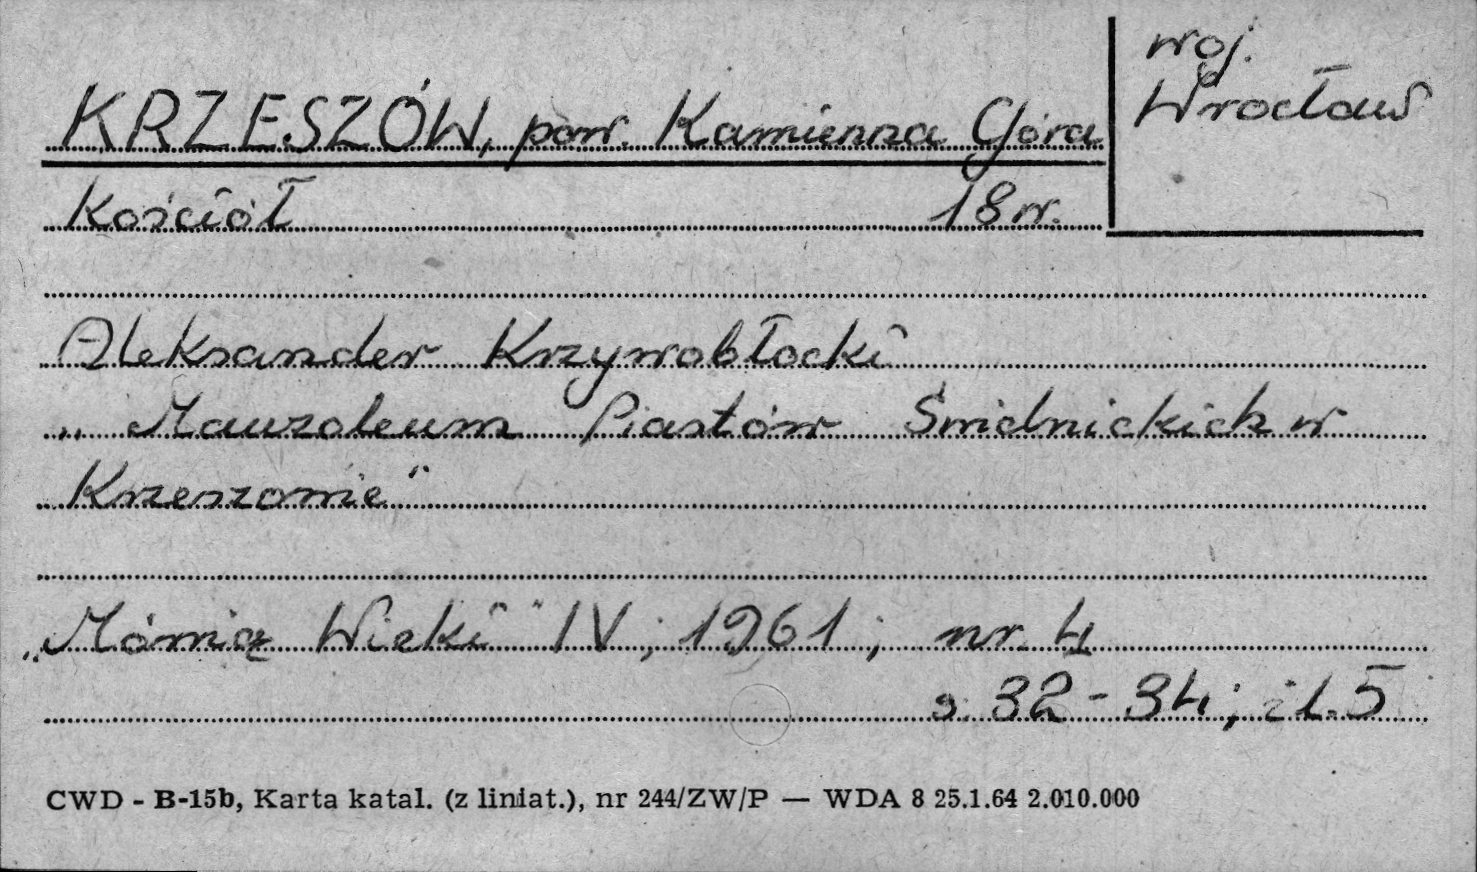 KRZESZÓW, pow. Kamienna Góra
woj. Wrocław
Kościół 18 w.
Aleksander Krzywobłocki
„Mauzoleum Piastów Świdnickich w
Krzeszowie"
„Mówią Wieki" IV; 1961; nr 4
s. 32-34; il. 5
CWD - B-15b, Karta katal. (z liniat.), nr 244/ZW/P — WDA 8 25.1.64 2.010.000